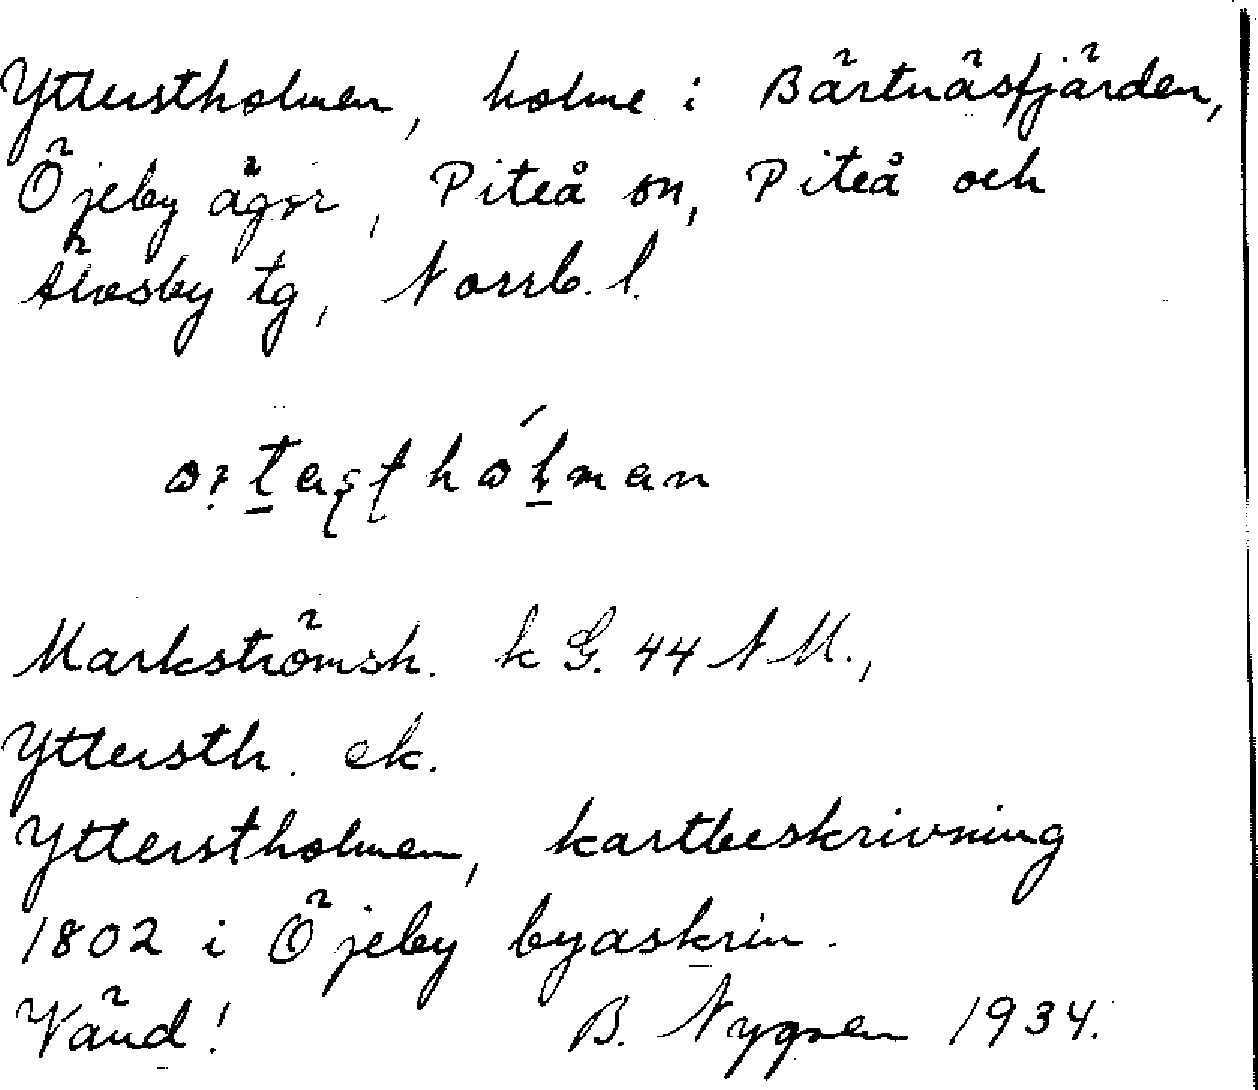 Ytterstholmen, holme i Bärtnäsfjärden,
Öjeby ägor, Piteå sn, Piteå och
Älvsby tg, Norrb. l.
Markströmsh. k G. 44 N M.,
Yttersth. ek.
Ytterstholmen, kartbeskrivning
1802 i Öjeby byaskrin.
Vänd! B. Nygren 1934.